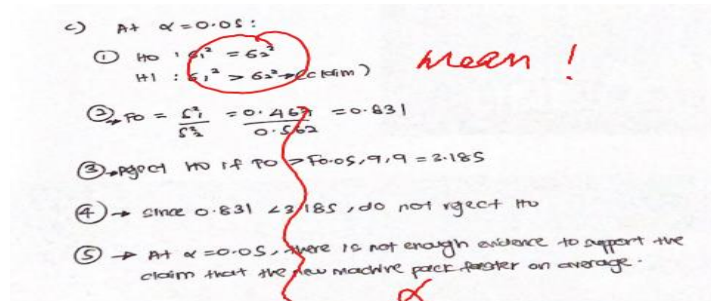 c) At α=0.05:
① H0 : σ1² = σ2²
Mean !
H1 : σ1² > σ2² → (claim)
② → F0 = S1²/S2² = 0.467/0.562 = 0.831
③ → reject H0 if F0 > F0.05,9,9 = 3.185
④ → since 0.831 < 3.185, do not reject H0
⑤ → At α=0.05, there is not enough evidence to support the
claim that the new machine pack faster on average.